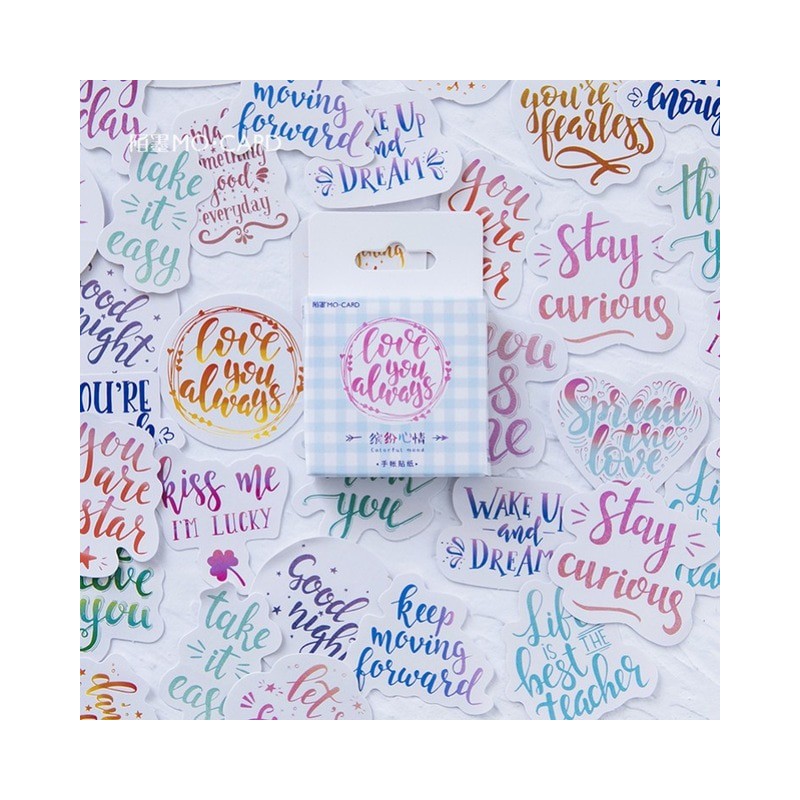 day
moving
forward
Wake Up
and
DREAM
you're
fearless
enough
陌墨MO·CARD
take
it
easy
something
good
everyday
you
are
Stay
curious
good
night
love
you
always
陌墨MO·CARD
love
you
always
缤纷心情
Colorful mood
·手帐贴纸·
you
Spread
the
love
YOU'RE
you
are
star
kiss me
I'M LUCKY
you
WAKE UP
and
DREAM
Stay
curious
love
you
Good
night
keep
moving
forward
take
it
easy
Life
IS THE
best
teacher
let's